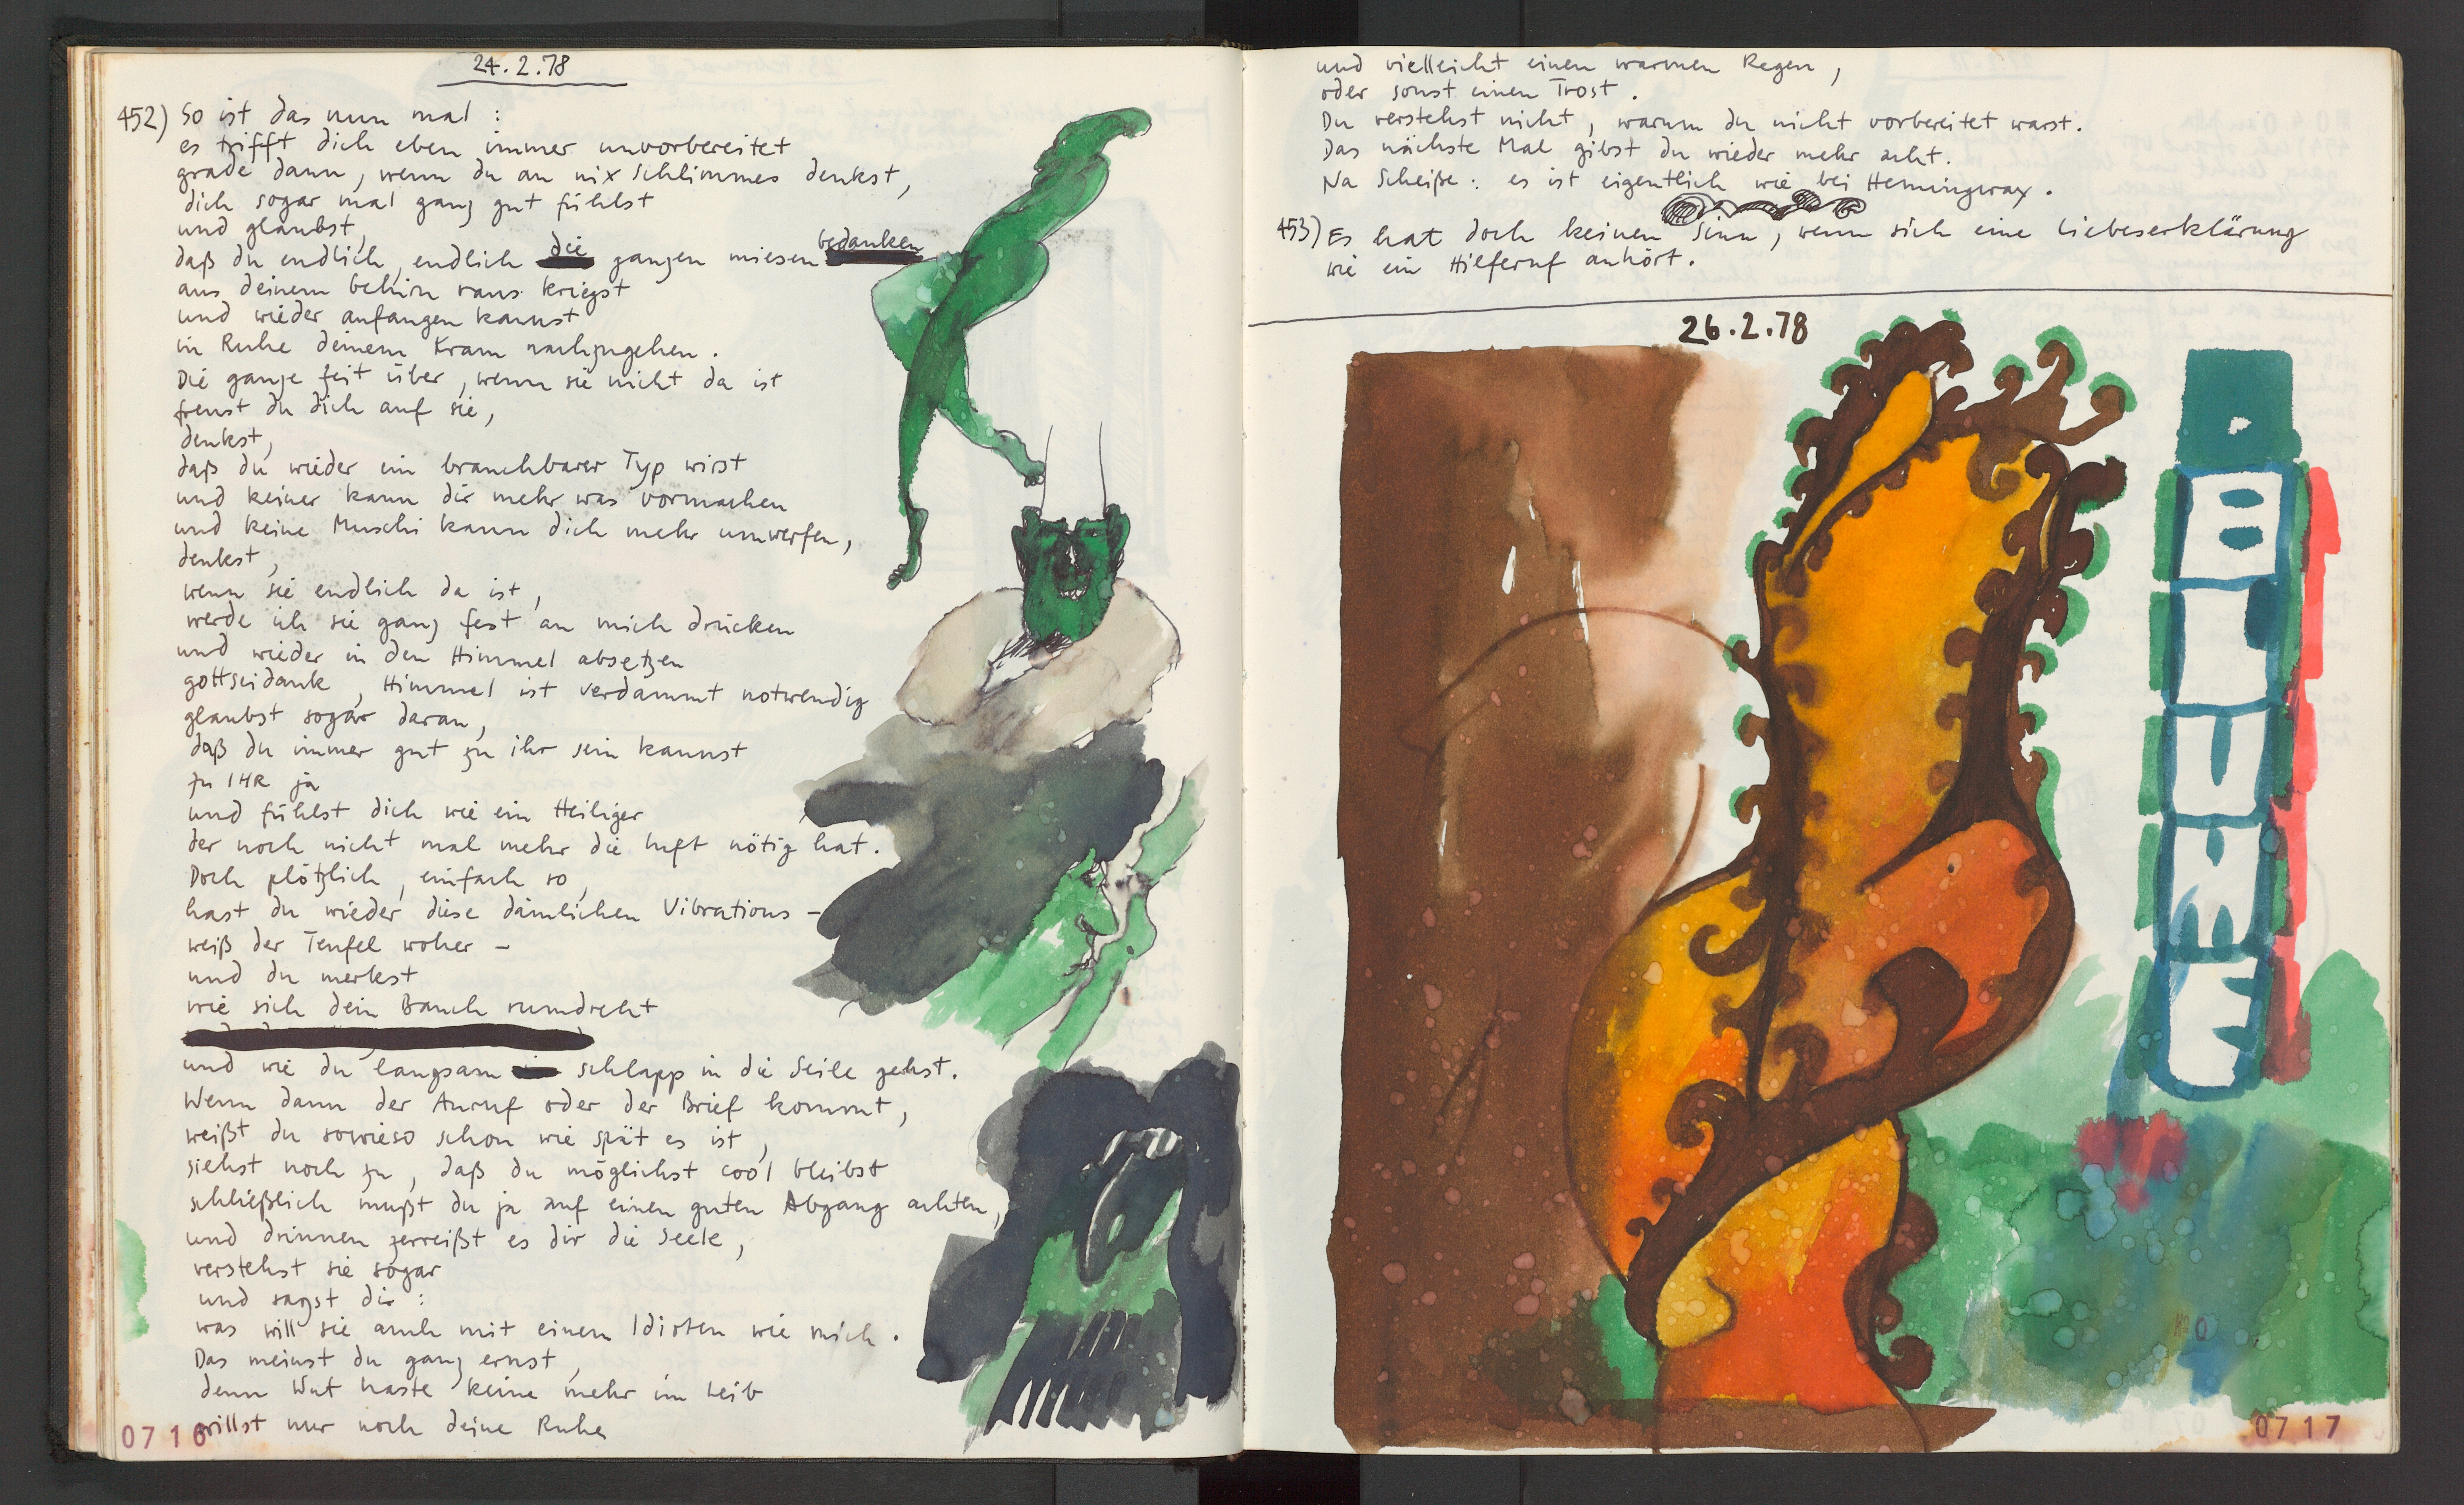 24.2.78
452) So ist das nun mal :
es trifft dich eben immer unvorbereitet
grade dann, wenn du an nix Schlimmes denkst,
dich sogar mal ganz gut fühlst
und glaubst,
daß du endlich, endlich die ganzen miesen Gedanken
aus deinem Gehirn raus kriegst
und wieder anfangen kannst
in Ruhe deinem Kram nachzugehen.
Die ganze Zeit über, wenn sie nicht da ist
freust du dich auf sie,
denkst,
daß du wieder ein brauchbarer Typ wirst
und keiner kann dir mehr was vormachen
und keine Muschi kann dich mehr umwerfen,
denkst,
wenn sie endlich da ist,
werde ich sie ganz fest an mich drücken
und wieder in den Himmel absetzen
gottseidank, Himmel ist verdammt notwendig
glaubst sogar daran,
daß du immer gut zu ihr sein kannst
zu IHR ja
und fühlst dich wie ein Heiliger
der noch nicht mal mehr die Luft nötig hat.
Doch plötzlich, einfach so,
hast du wieder diese dämlichen Vibrations –
weiß der Teufel woher –
und du merkst
wie sich dein Bauch rumdreht
und wie du langsam schlapp in die Seile gehst.
Wenn dann der Anruf oder der Brief kommt,
weißt du sowieso schon wie spät es ist,
siehst noch zu, daß du möglichst cool bleibst
schließlich mußt du ja auf einen guten Abgang achten,
und drinnen zerreißt es dir die Seele,
verstehst sie sogar
und sagst dir :
was will sie auch mit einem Idioten wie mich.
Das meinst du ganz ernst,
denn Wut haste keine mehr im Leib
willst nur noch deine Ruhe
0716
und vielleicht einen warmen Regen,
oder sonst einen Trost.
Du verstehst nicht, warum du nicht vorbereitet warst.
Das nächste Mal gibst du wieder mehr acht.
Na Scheiße: es ist eigentlich wie bei Hemingway.
453) Es hat doch keinen Sinn, wenn sich eine Liebeserklärung
wie ein Hilferuf anhört.
26.2.78
0717